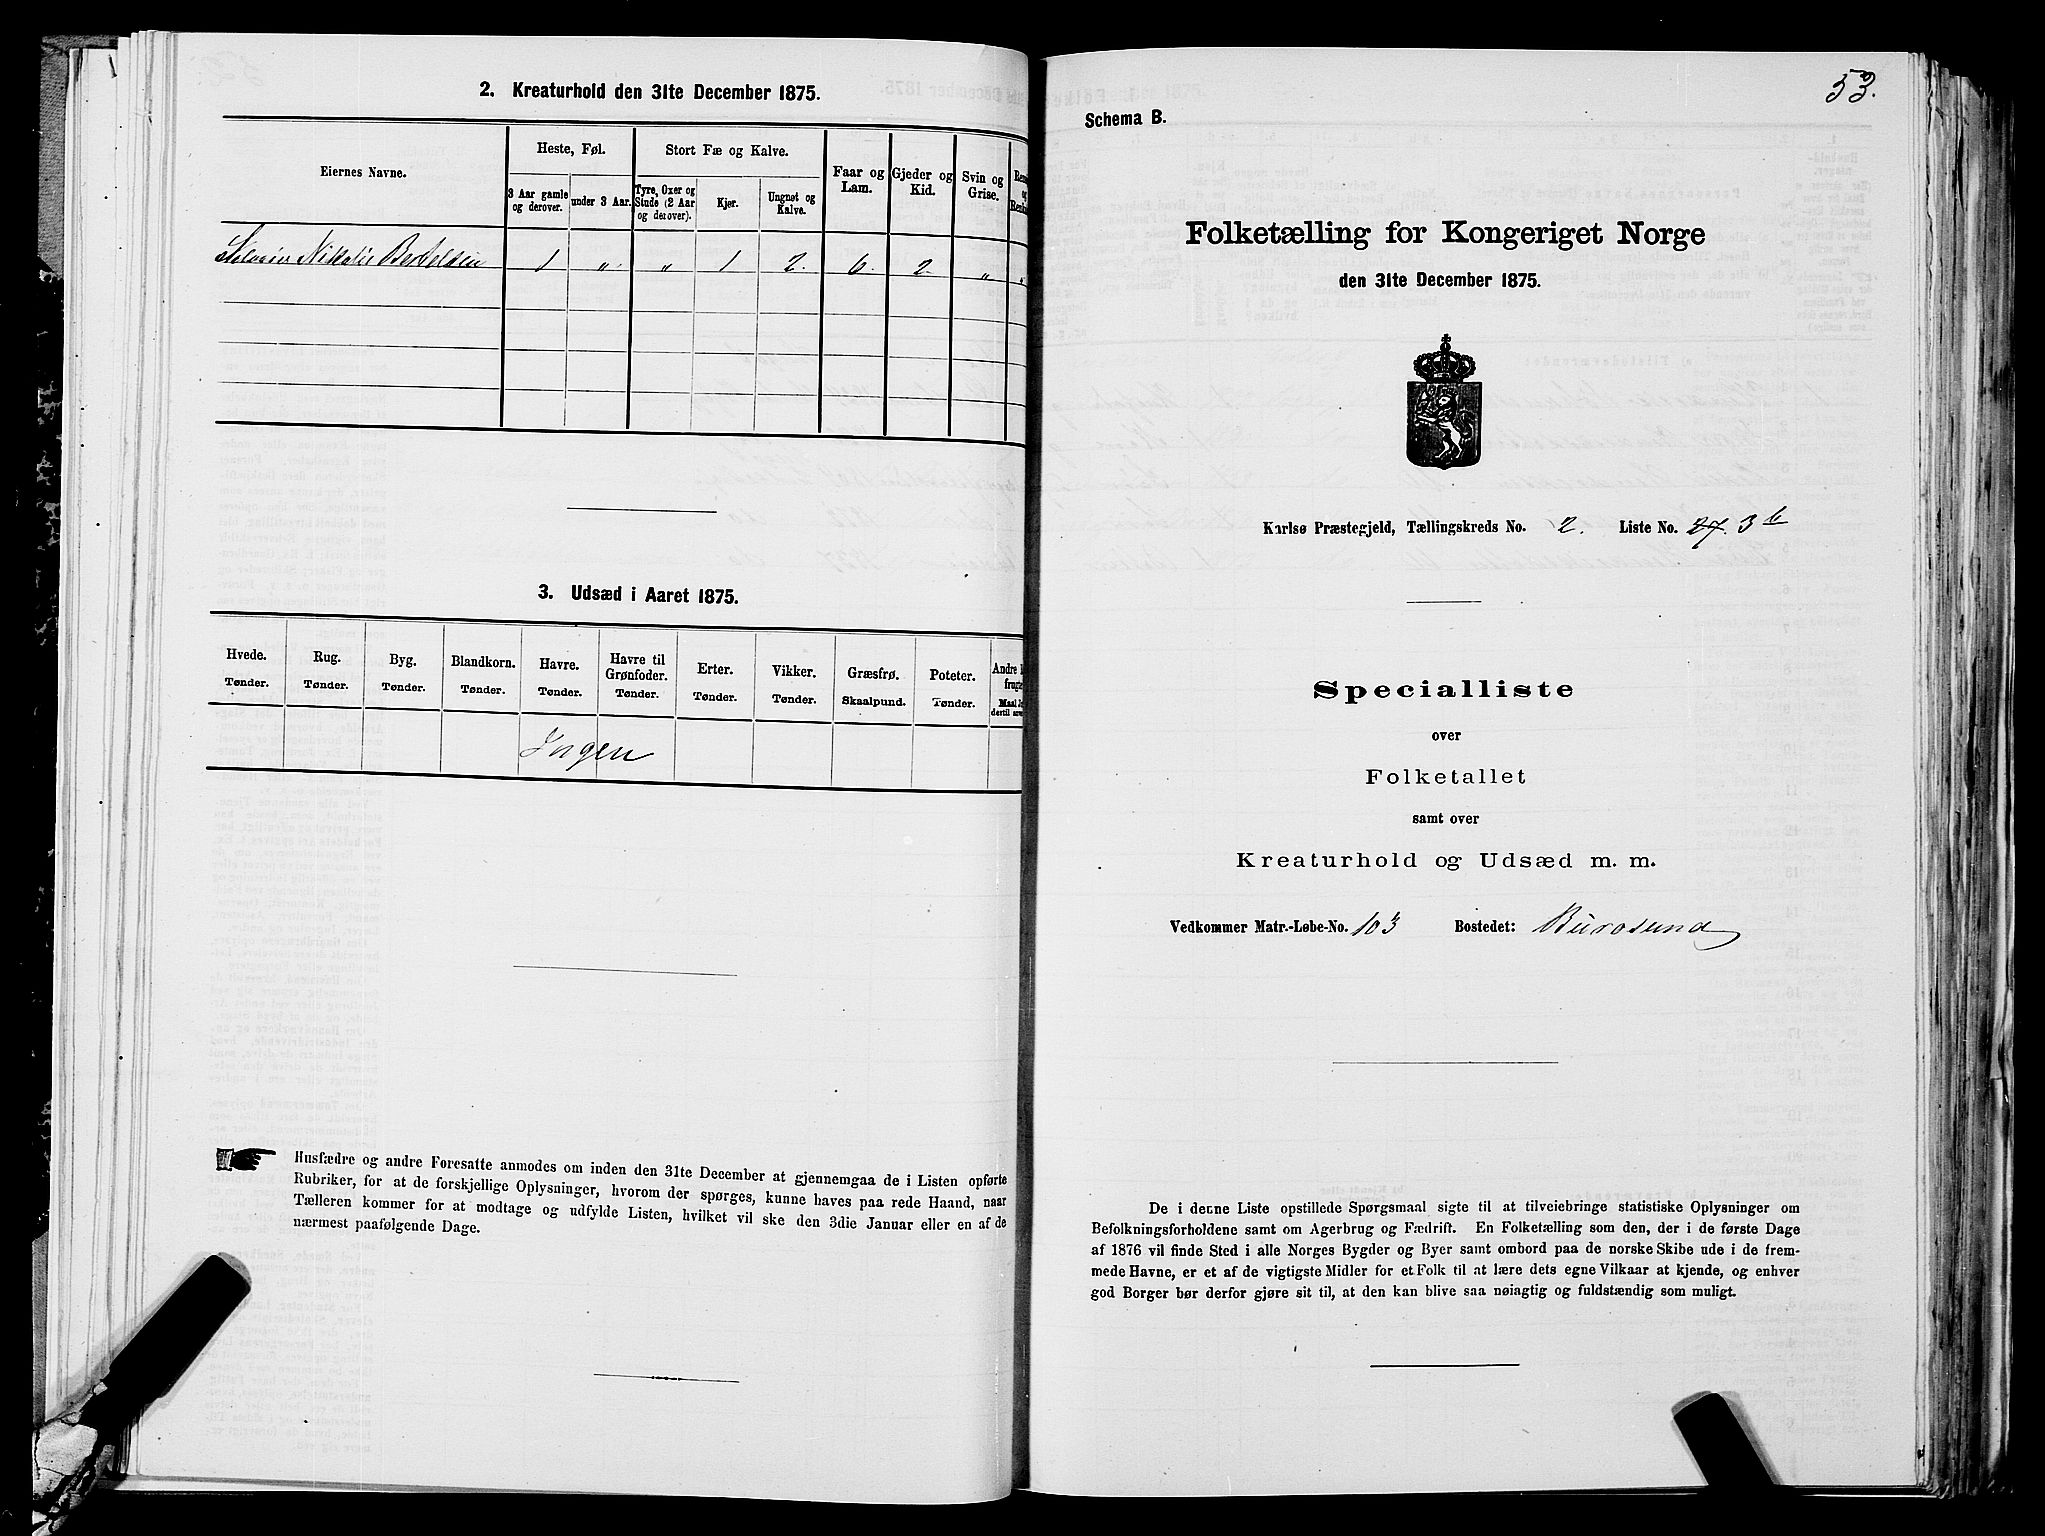 2. Kreaturhold den 31te December 1875.
Eiernes Navne.
Heste, Føl.
Stort Fæ og Kalve.
Faar og Lam.
Gjeder og Kid.
Svin og Grise.
3 Aar gamle og derover.
under 3 Aar.
Tyre, Oxer og Stude (2 Aar og derover).
Kjør.
Ungnøt og Kalve.
Nikolai Bertelsen 1 " " 1 2. 6. 2. " "
3. Udsæd i Aaret 1875.
Hvede. Rug. Byg. Blandkorn. Havre. Havre til Grønfoder. Erter. Vikker. Græsfrø. Poteter. Andre
Tønder. Tønder. Tønder. Tønder. Tønder. Tønder. Tønder. Tønder. Skaalpund. Tønder.
Ingen
Husfædre og andre Foresatte anmodes om inden den 31te December at gjennemgaa de i Listen opførte
Rubriker, for at de forskjellige Oplysninger, hvorom der spørges, kunne haves paa rede Haand, naar
Tælleren kommer for at modtage og udfylde Listen, hvilket vil ske den 3die Januar eller en af de
nærmest paafølgende Dage.
53.
Schema B.
Folketælling for Kongeriget Norge
den 31te December 1875.
Karlsø Præstegjeld, Tællingskreds No. 2. Liste No. 27. 3 b
Specialliste
over
Folketallet
samt over
Kreaturhold og Udsæd m. m.
Vedkommer Matr.-Løbe-No. 103 Bostedet: Burøsund
De i denne Liste opstillede Spørgsmaal sigte til at tilveiebringe statistiske Oplysninger om
Befolkningsforholdene samt om Agerbrug og Fædrift. En Folketælling som den, der i de første Dage
af 1876 vil finde Sted i alle Norges Bygder og Byer samt ombord paa de norske Skibe ude i de frem-
mede Havne, er et af de vigtigste Midler for et Folk til at lære dets egne Vilkaar at kjende, og enhver
god Borger bør derfor gjøre sit til, at den kan blive saa nøiagtig og fuldstændig som muligt.